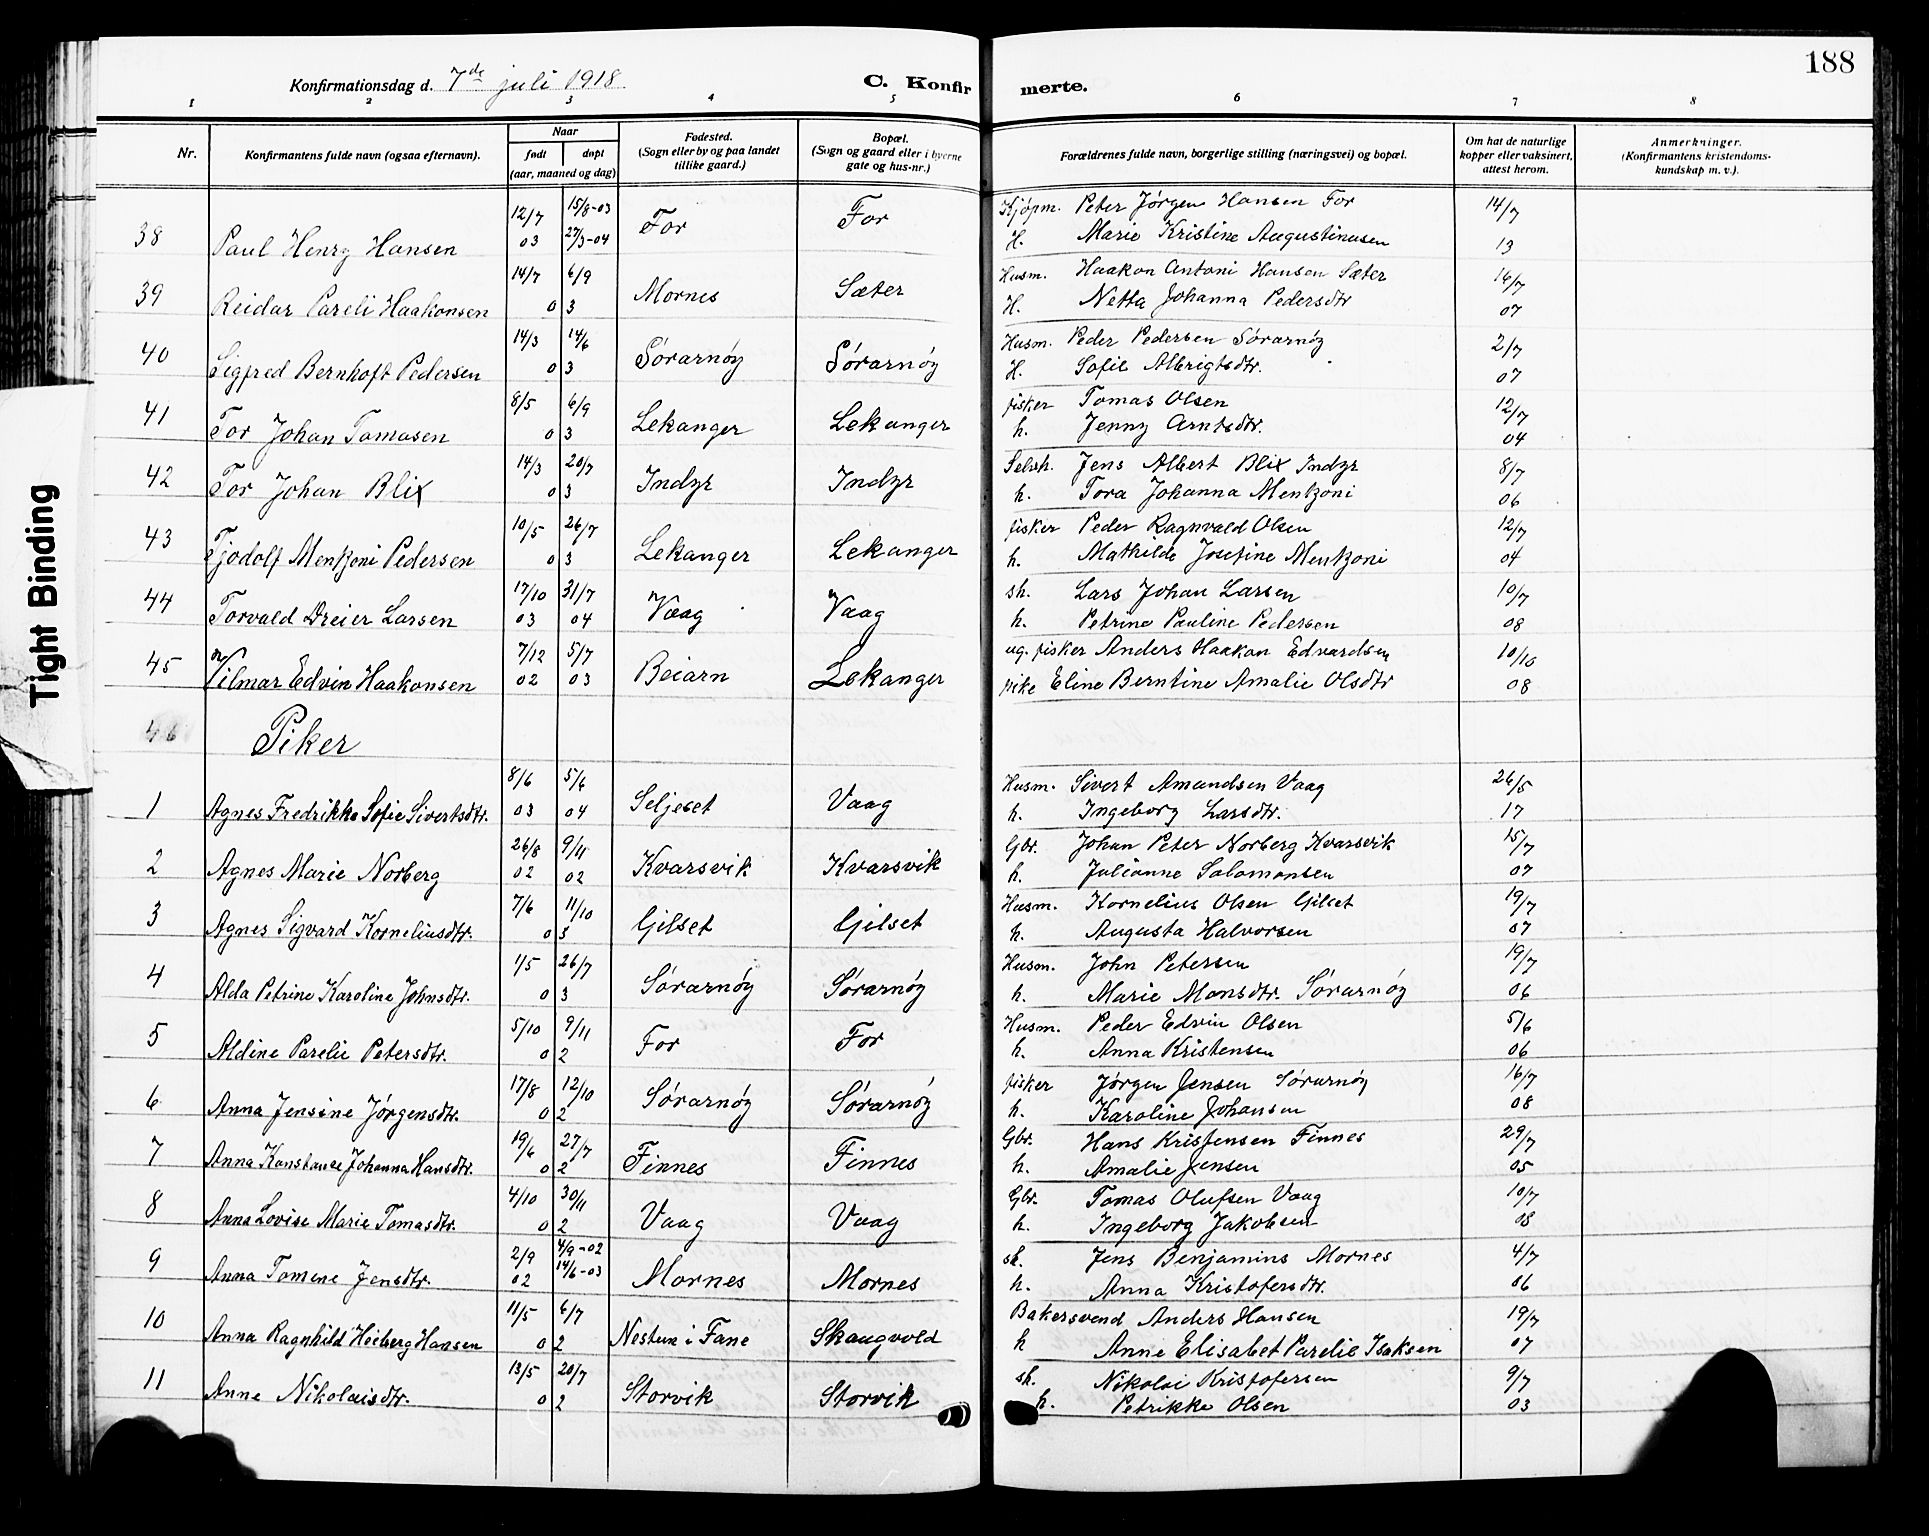 188
Konfirmationsdag d. 7de juli 1918
C. Konfirmerte.
1 2 3 4 5 6 7 8
Nr. Konfirmantens fulde navn (ogsaa efternavn). Naar født døpt (aar, maaned og dag) Fødested. (Sogn eller by og paa landet tillike gaard.) Bopæl. (Sogn og gaard eller i byerne gate og hus-nr.) Forældrenes fulde navn, borgerlige stilling (næringsvei) og bopæl. Om hat de naturlige kopper eller vaksinert, attest herom. Anmerkninger. (Konfirmantens kristendoms-kundskap m. v.).
38 Paul Henry Hansen 12/7 03 15/8-03 27/3-04 For For Kjøpm. Peter Jørgen Hansen For 14/7
H. Marie Kristine Augustinusen 13
39 Reidar Pareli Haakonsen 14/7 6/9 03 Mornes Sæter Husm. Haakon Antoni Hansen Sæter 16/7
H. Netta Johanna Pedersdtr 07
40 Sigfred Bernhoft Pedersen 14/3 14/6 03 Sørarnøy Sørarnøy Husm. Peder Pedersen Sørarnøy 2/7
H. Sofie Albrigtsdtr. 07
41 Tor Johan Tomasen 8/5 6/9 03 Lekanger Lekanger fisker Tomas Olsen 12/7
h. Jenny Arntsdtr. 04
42 Tor Johan Blix 14/3 20/7 03 Indyr Indyr Selvsh. Jens Albert Blix Indyr 8/7
h. Tora Johanna Mentzoni 06
43 Tjodolf Mentzoni Pedersen 10/5 26/7 03 Lekanger Lekanger fisker Peder Ragnvald Olsen 12/7
h. Mathilde Josefine Mentzoni 04
44 Torvald Dreier Larsen 17/10 03 31/7 04 Vaag Vaag sh. Lars Johan Larsen 10/7
h. Petrine Pauline Pedersen 08
45 Vilmar Edvin Haakonsen 7/12 02 5/7 03 Beiarn Lekanger ug. fisker Anders Haakon Edvardsen 10/10
pike Eline Berntine Amalie Olsdtr 08
46 Piker
1 Agnes Fredrikke Sofie Sivertsdtr. 8/6 03 5/6 04 Seljeset Vaag Husm. Sivert Amundsen Vaag 26/5
h. Ingeborg Larsdtr. 17
2 Agnes Marie Norberg 26/8 02 9/11 02 Kvarsvik Kvarsvik Gbr. Johan Peter Norberg Kvarsvik 15/7
h. Julianne Salomonsen 07
3 Agnes Sigvard Korneliusdtr. 7/6 11/10 03 Gilset Gilset Husm. Kornelius Olsen Gilset 19/7
h. Augusta Halvorsen 07
4 Alda Petrine Karoline Johnsdtr. 1/5 26/7 03 Sørarnøy Sørarnøy Husm. John Petersen 19/7
h. Marie Monsdtr. Sørarnøy 06
5 Aldine Parelie Petersdtr. 5/10 9/11 02 For For Husm. Peder Edvin Olsen 5/6
h. Anna Kristensen 06
6 Anna Jensine Jørgensdtr. 17/8 12/10 02 Sørarnøy Sørarnøy fisker Jørgen Jensen Sørarnøy 16/7
h. Karoline Johansen 08
7 Anna Konstanse Johanna Hansdtr. 19/6 27/7 02 Finnes Finnes Gbr. Hans Kristensen Finnes 29/7
h. Amalie Jensen 05
8 Anna Lovise Marie Tomasdtr. 4/10 30/11 02 Vaag Vaag Gbr. Tomas Olufsen Vaag 10/7
h. Ingeborg Jakobsen 08
9 Anna Tomine Jensdtr. 2/9 02 4/9-02 14/6-03 Mornes Mornes sh. Jens Benjamins Mornes 4/7
h. Anna Kristofersdtr. 06
10 Anna Ragnhild Heiberg Hansen 11/5 6/7 02 Nestun i Fane Skaugvold Bakersvend Anders Hansen 19/7
h Anne Elisabet Parelie Isaksen 07
11 Anne Nikolaisdtr. 13/5 20/7 02 Storvik Storvik sh. Nikolai Kristofersen 9/7
h. Petrikke Olsen 03
Tight Binding